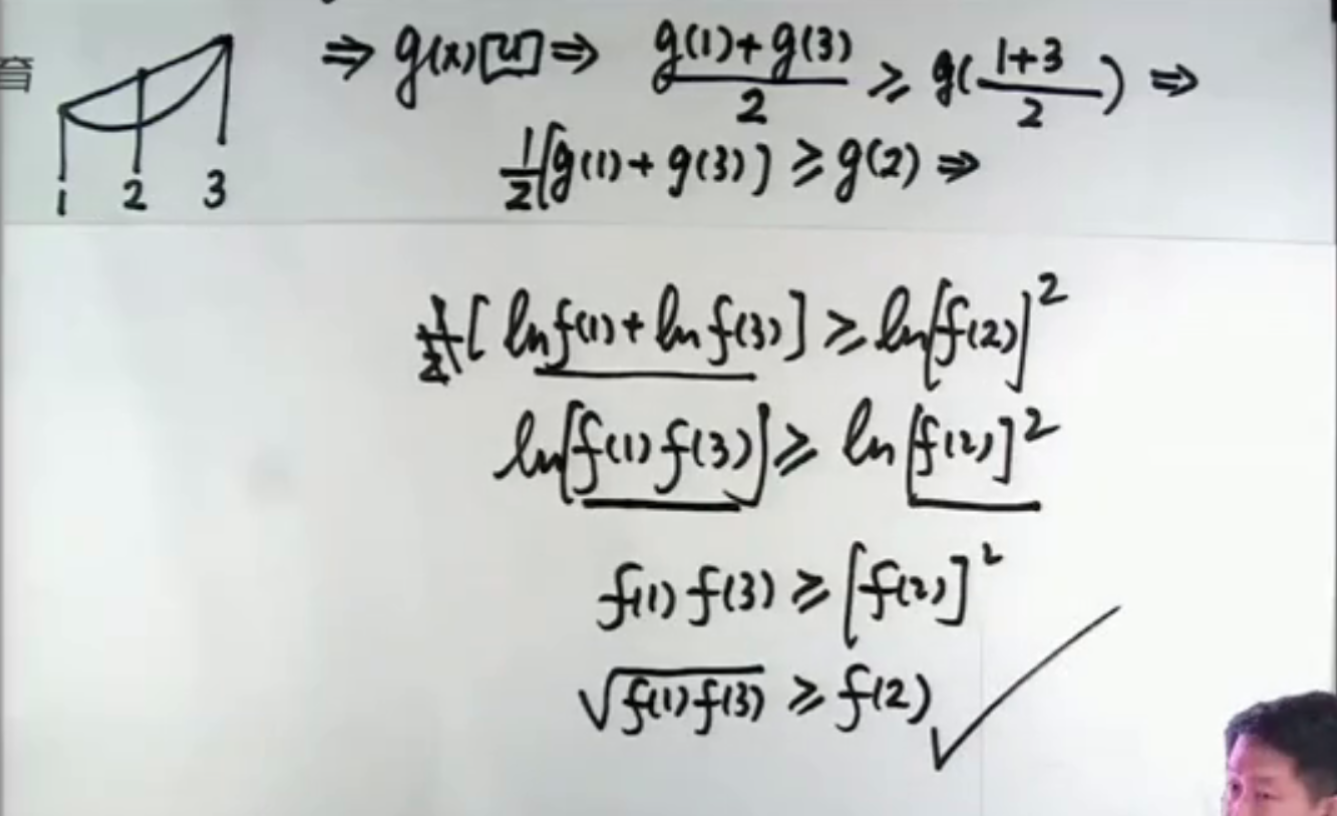 育
⇒ g(x)凹 ⇒ \frac{g(1)+g(3)}{2} ≥ g(\frac{1+3}{2}) ⇒
1 2 3
\frac{1}{2}[g(1)+g(3)] ≥ g(2) ⇒
[ln f(1)+ln f(3)] ≥ ln[f(2)]^2
ln[f(1)f(3)] ≥ ln[f(2)]^2
f(1)f(3) ≥ [f(2)]^2
\sqrt{f(1)f(3)} ≥ f(2)